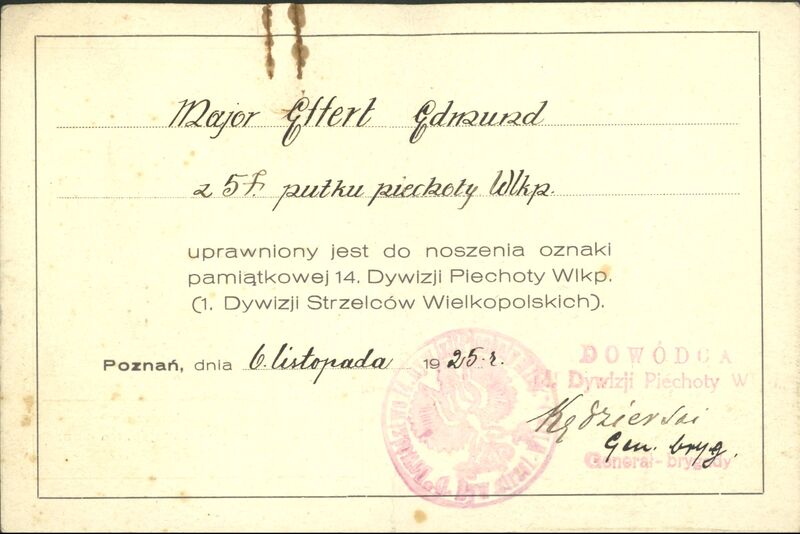 Major Effert Edmund
z 57. pułku piechoty Wlkp.
uprawniony jest do noszenia oznaki
pamiątkowej 14. Dywizji Piechoty Wlkp.
(1. Dywizji Strzelców Wielkopolskich).
Poznań, dnia 6. listopada 1925. r.
DOWÓDCA
14. Dywizji Piechoty W
Kędzierski
Gen. bryg.
Generał-brygady